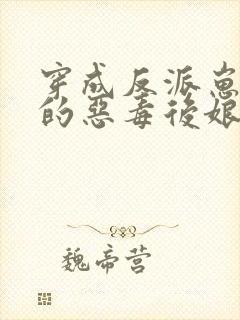 穿成反派崽崽
的惡毒後娘
魏帝营